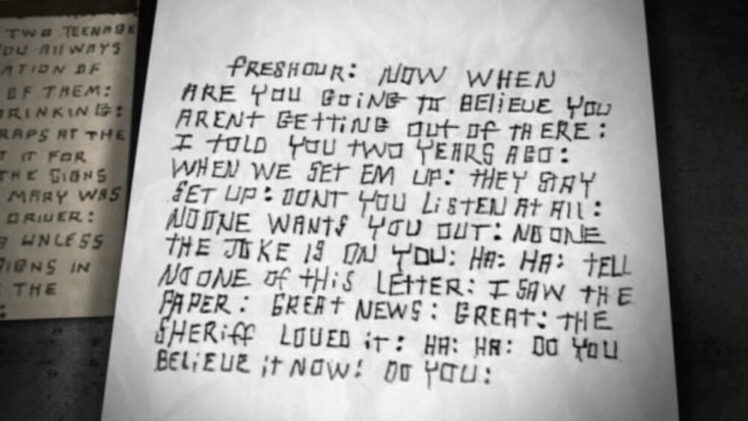 TWO TEENAGE
YOU ALWAYS
ATION OF
OF THEM:
DRINKING:
RAPS AT THE
T IT FOR
THE SIGNS
MARY WAS
DRIVER:
UNLESS
SIGNS IN
THE
FRESHOUR: NOW WHEN
ARE YOU GOING TO BELIEVE YOU
ARENT GETTING OUT OF THERE:
I TOLD YOU TWO YEARS AGO:
WHEN WE SET EM UP: THEY STAY
SET UP: DONT YOU LISTEN AT ALL:
NOONE WANTS YOU OUT: NOONE
THE JOKE IS ON YOU: HA: HA: TELL
NOONE OF THIS LETTER: I SAW THE
PAPER: GREAT NEWS: GREAT: THE
SHERIFF LOVED IT: HA: HA: DO YOU
BELIEVE IT NOW: DO YOU: